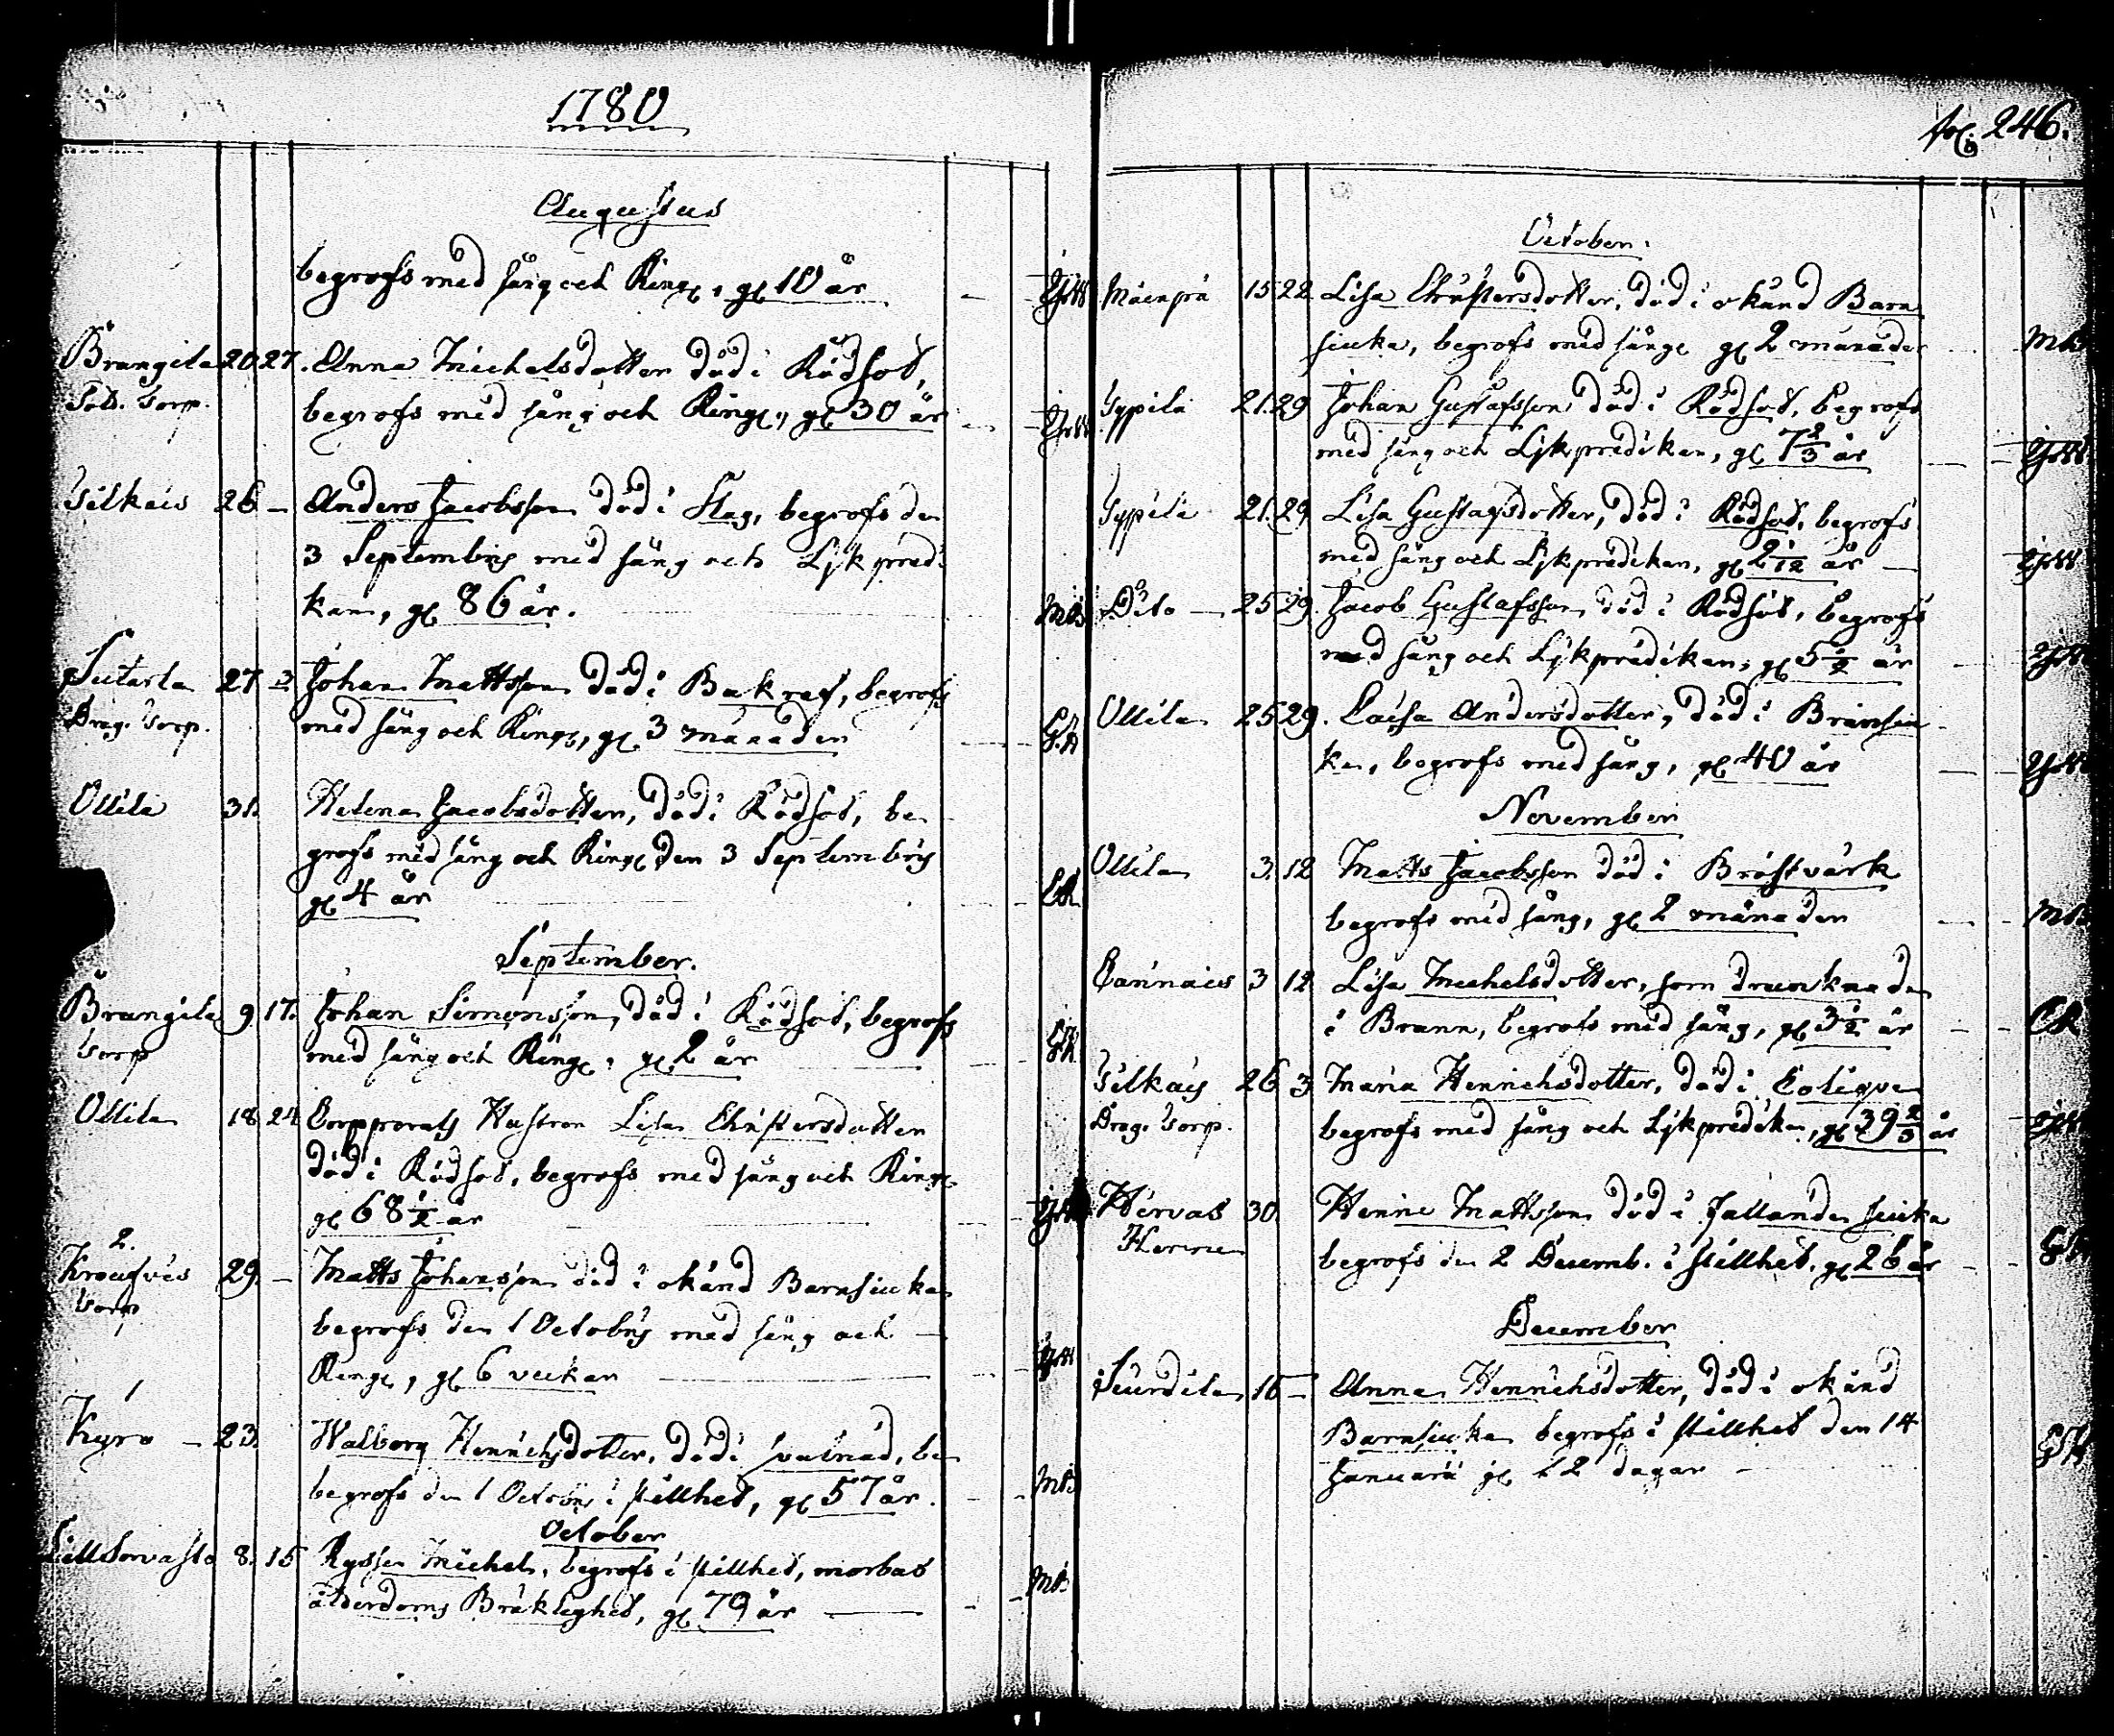 1780
Augustus
begrofs med sång och Ringn., gl. 10 år
Brangila 20 27. Anna Michelsdotter död i Rödsot,
Sold. Torp. begrofs med sång och Ringn., gl. 30 år
Silkais 26 – Anders Jacobsson död i Slag, begrofs den
3 Septembris med sång och Lijkpredi
kan, gl. 86 år. MB
27 3. Johan Mattsson död i , begrofs
Drag. Torp. med sång och Ringn., gl. 3 månader
Ollila 31. Helena Jacobsdotter, död i Rödsot, be
grofs med sång och Ringn. den 3 Septembris
gl. 4 år
September.
Brangila 9. 17. Johan Simonsson, död i Rödsot, begrofs
Torp med sång och Ringn., gl. 2 år
Ollila 18 24 Corpporals Hustron Lisa Christersdotter
död i Rödsot, begrofs med sång och Ringn.
gl. 68 1/2 år
2.
Kroufvis 29. – Matts Johansson död i okänd Barnsiuka
Torp begrofs den 1 Octobris med sång och –
Ringn., gl. 6 veckar
Kyrö – 23. Walborg Henrichsdotter, död i , be
begrofs den 1 Octobris i stillhet, gl. 57 år. MB
October
8. 15 Michel, begrofs i stillhet, morbus
ålderdoms Bräklighet, gl. 79 år MB
fol. 246.
October.
15 22 Lisa Christersdotter, död i okänd Barn
siuka, begrofs med sång gl. 2 månader MB
Sypilä 21. 29 Johan Gustafsson död i Rödsot, begrofs
med sång och Lijkpredikan, gl. 7 2/3 år
Sypilä 21. 29 Lisa Gustafsdotter, död i Rödsot, begrofs
med sång och Lijkpredikan, gl. 2 1/12 år
Dito – 25 29. Jacob Gustafsson död i Rödsot, begrofs
med sång och Lijkpredikan, gl. 5 1/2 år
Ollila 25 29. Caisa Andersdotter, död i Brånsiu
ka, begrofs med sång, gl. 40 år
November
Ollila 3. 12 Matts Jacobsson död i Bröstvärk
begrofs med sång, gl. 2 månader MB
3 12 Lisa Michelsdotter, som drunknade
i Brunn, begrofs med sång, gl. 3 1/2 år
Silkais 26 3 Maria Henrichsdotter, död i Colique
Drag. Torp. begrofs med sång och Lijkpredikan, gl. 39 2/3 år
30. Henric Mattsson död i fallande siuka
begrofs den 2 Decemb. i stillhet, gl. 26 år
December
16 – Anna Henrichsdotter, död i okänd
Barnsiuka begrofs i stillhet den 14
Januarii gl. 12 dagar –